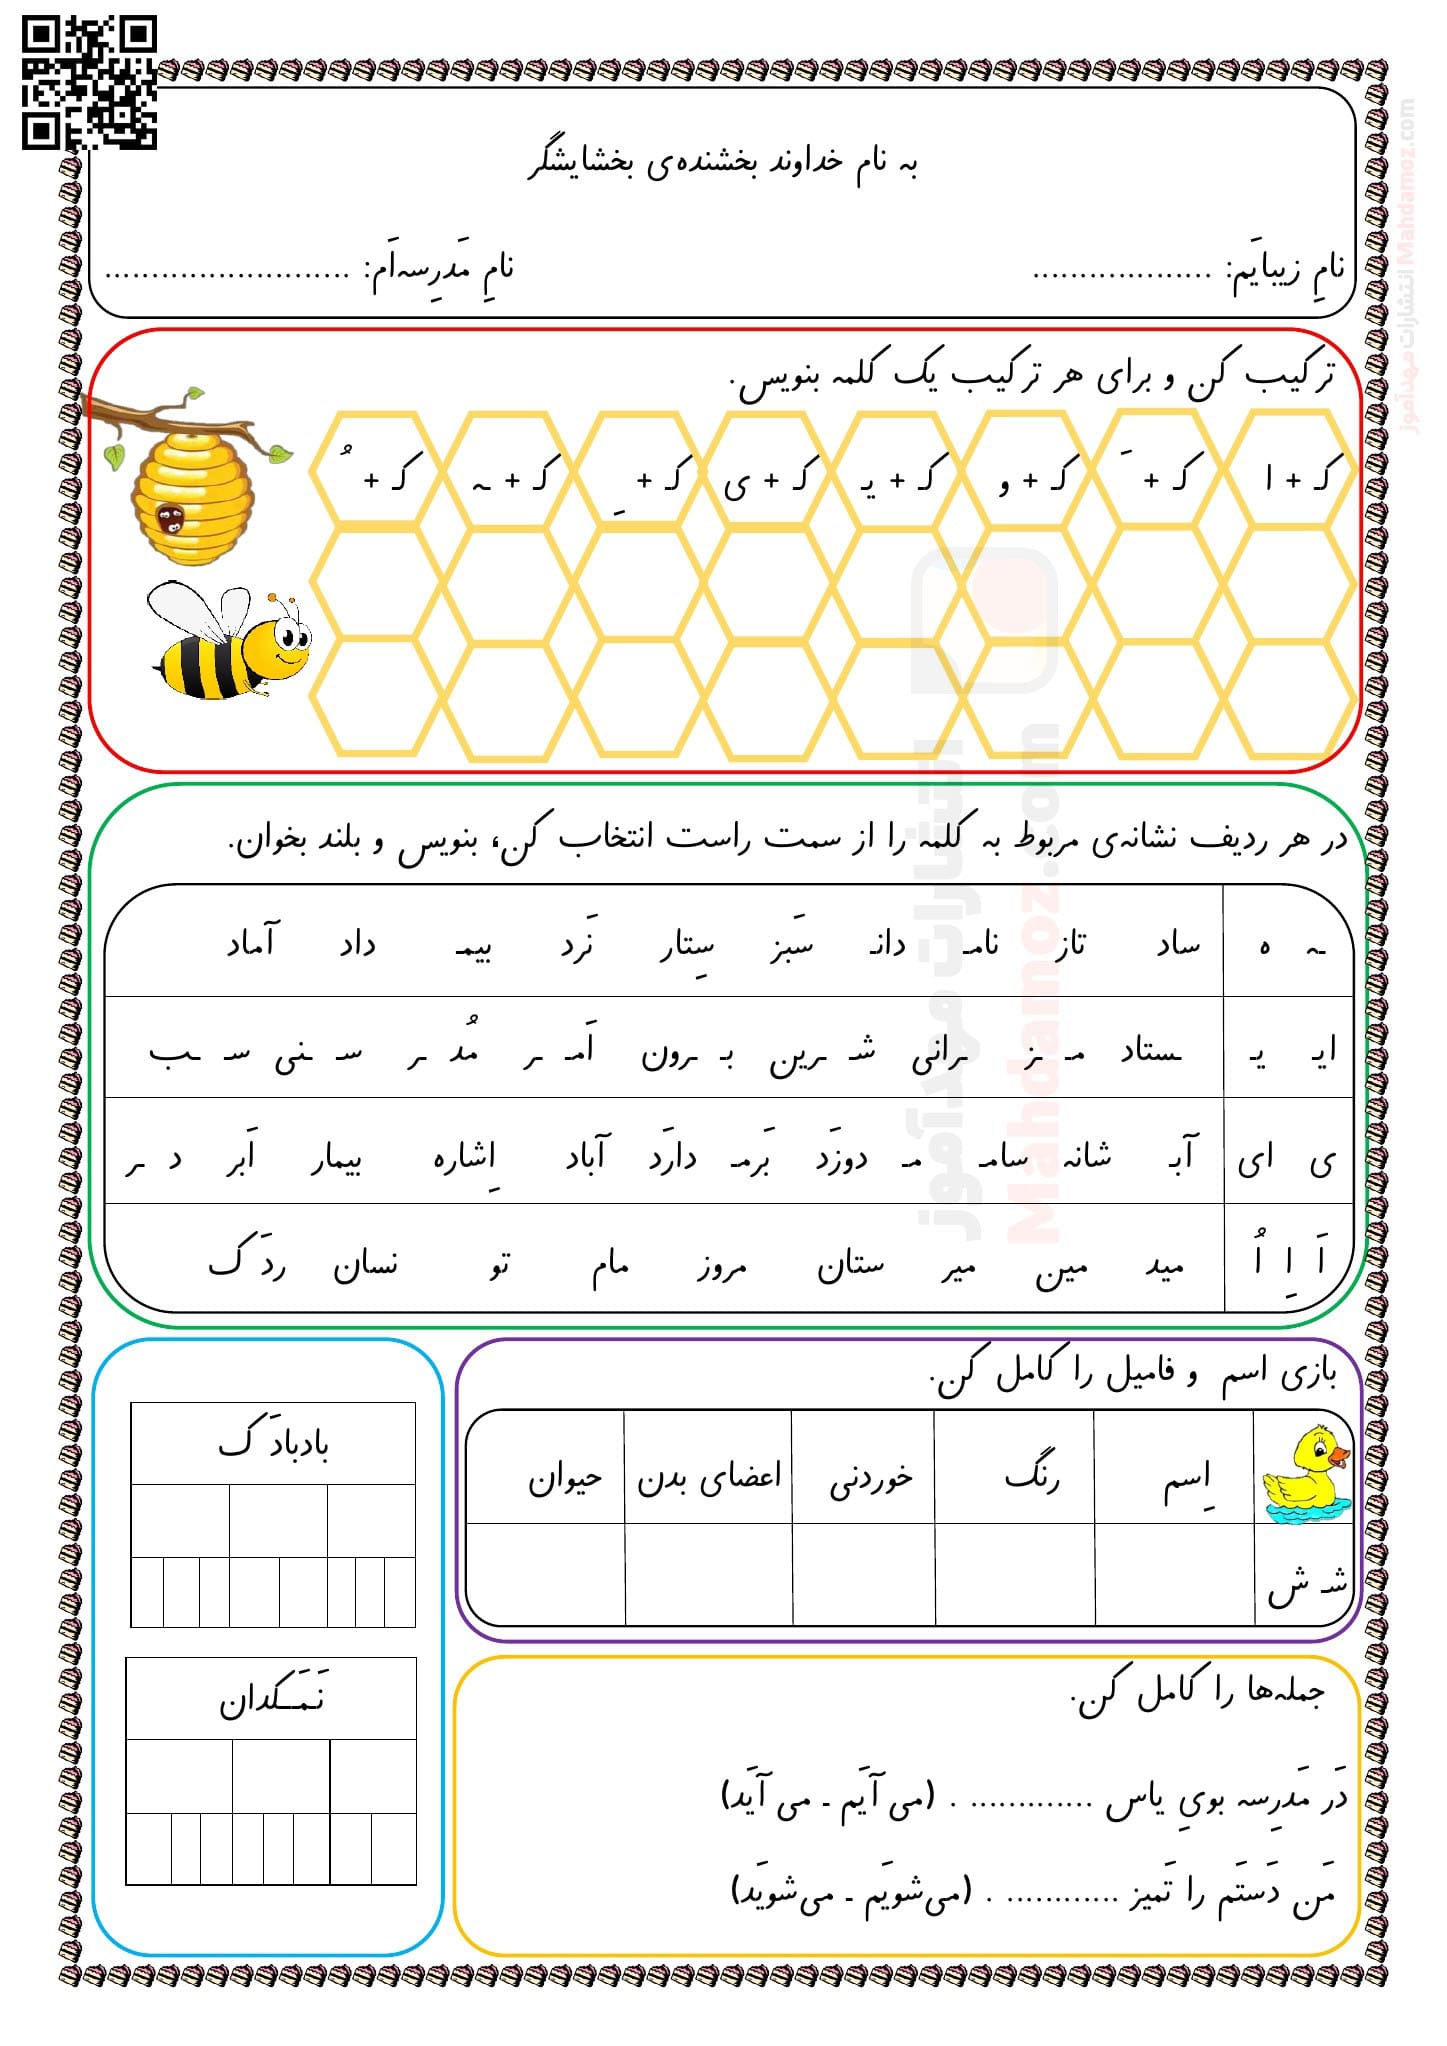 به نام خداوند بخشنده‌ی بخشایشگر
نامِ زیبایَم: ................... نامِ مَدرِسه‌اَم: ..........................
ترکیب کن و برای هر ترکیب یک کلمه بنویس.
کـ + ا کـ + َ کـ + و کـ + یـ کـ + ی کـ + ِ کـ + ـه کـ + ُ
در هر ردیف نشانه‌ی مربوط به کلمه را از سمت راست انتخاب کن، بنویس و بلند بخوان.
ـه ه ساد تاز نامـ دانـ سَبز سِتار نَرد بیمـ داد آماد
ایـ یـ ـستاد مـ ـز ـرانی شـ ـرین بـ ـرون اَمـ ـر مُد ـر سـ ـنی سـ ـب
ی ای آبـ شانه سامـ مـ دوزَد بَرمـ دارَد آباد اِشاره بیمار اَبر د ـر
اَ اِ اُ مید مین میر ستان مروز مام تو نسان ردَک
بازی اسم و فامیل را کامل کن.
اِسم رنگ خوردنی اعضای بدن حیوان
شـ ش
بادبادَک
نَمَـکدان
جمله‌ها را کامل کن.
دَر مَدرِسه بویِ یاس ............. . (می آیَم - می آیَد)
مَن دَستَم را تَمیز ............ . (می‌شویَم - می‌شویَد)
انتشارات مهدآموز
Mahdamoz.com
انتشارات مهدآموز Mahdamoz.com